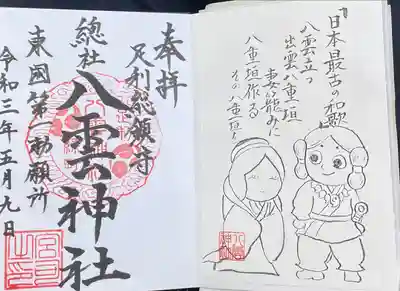 奉拝
足利総鎮守
總社
八雲神社
東國第一勅願所
令和三年五月九日
日本最古の和歌
八雲立つ
出雲八重垣
妻籠みに
八重垣作る
その八重垣を